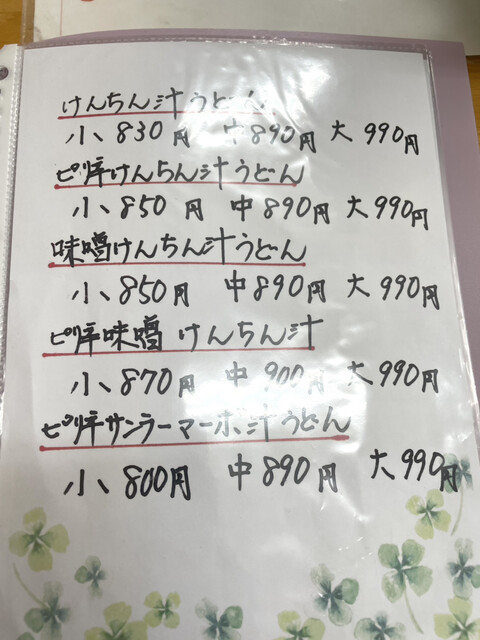 けんちん汁うどん
小 830円 中890円 大 990円
ピリ辛けんちん汁うどん
小 850円 中 890円 大 990円
味噌けんちん汁うどん
小 850円 中 890円 大 990円
ピリ辛味噌 けんちん汁
小 870円 中 900円 大 990円
ピリ辛サンラーマーボ汁うどん
小 800円 中 890円 大 990円